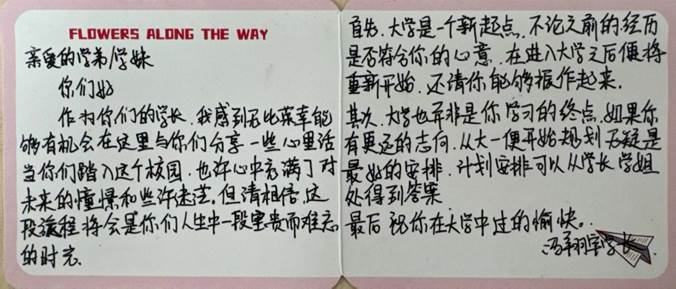 FLOWERS ALONG THE WAY
亲爱的学弟/学妹
你们好
作为你们的学长，我感到无比荣幸能
够有机会在这里与你们分享一些心里话
当你们踏入这个校园，也许心中充满了对
未来的憧憬和些许迷茫，但请相信，这
段旅程将会是你们人生中一段宝贵而难忘
的时光.
首先，大学是一个新起点，不论之前的经历
是否符合你的心意，在进入大学之后便将
重新开始，还请你能够振作起来.
其次，大学也并非是你学习的终点，如果你
有更远的志向，从大一便开始规划无疑是
最好的安排，计划安排可以从学长学姐
处得到答案
最后 祝你在大学中过的愉快。
冯翔宇学长